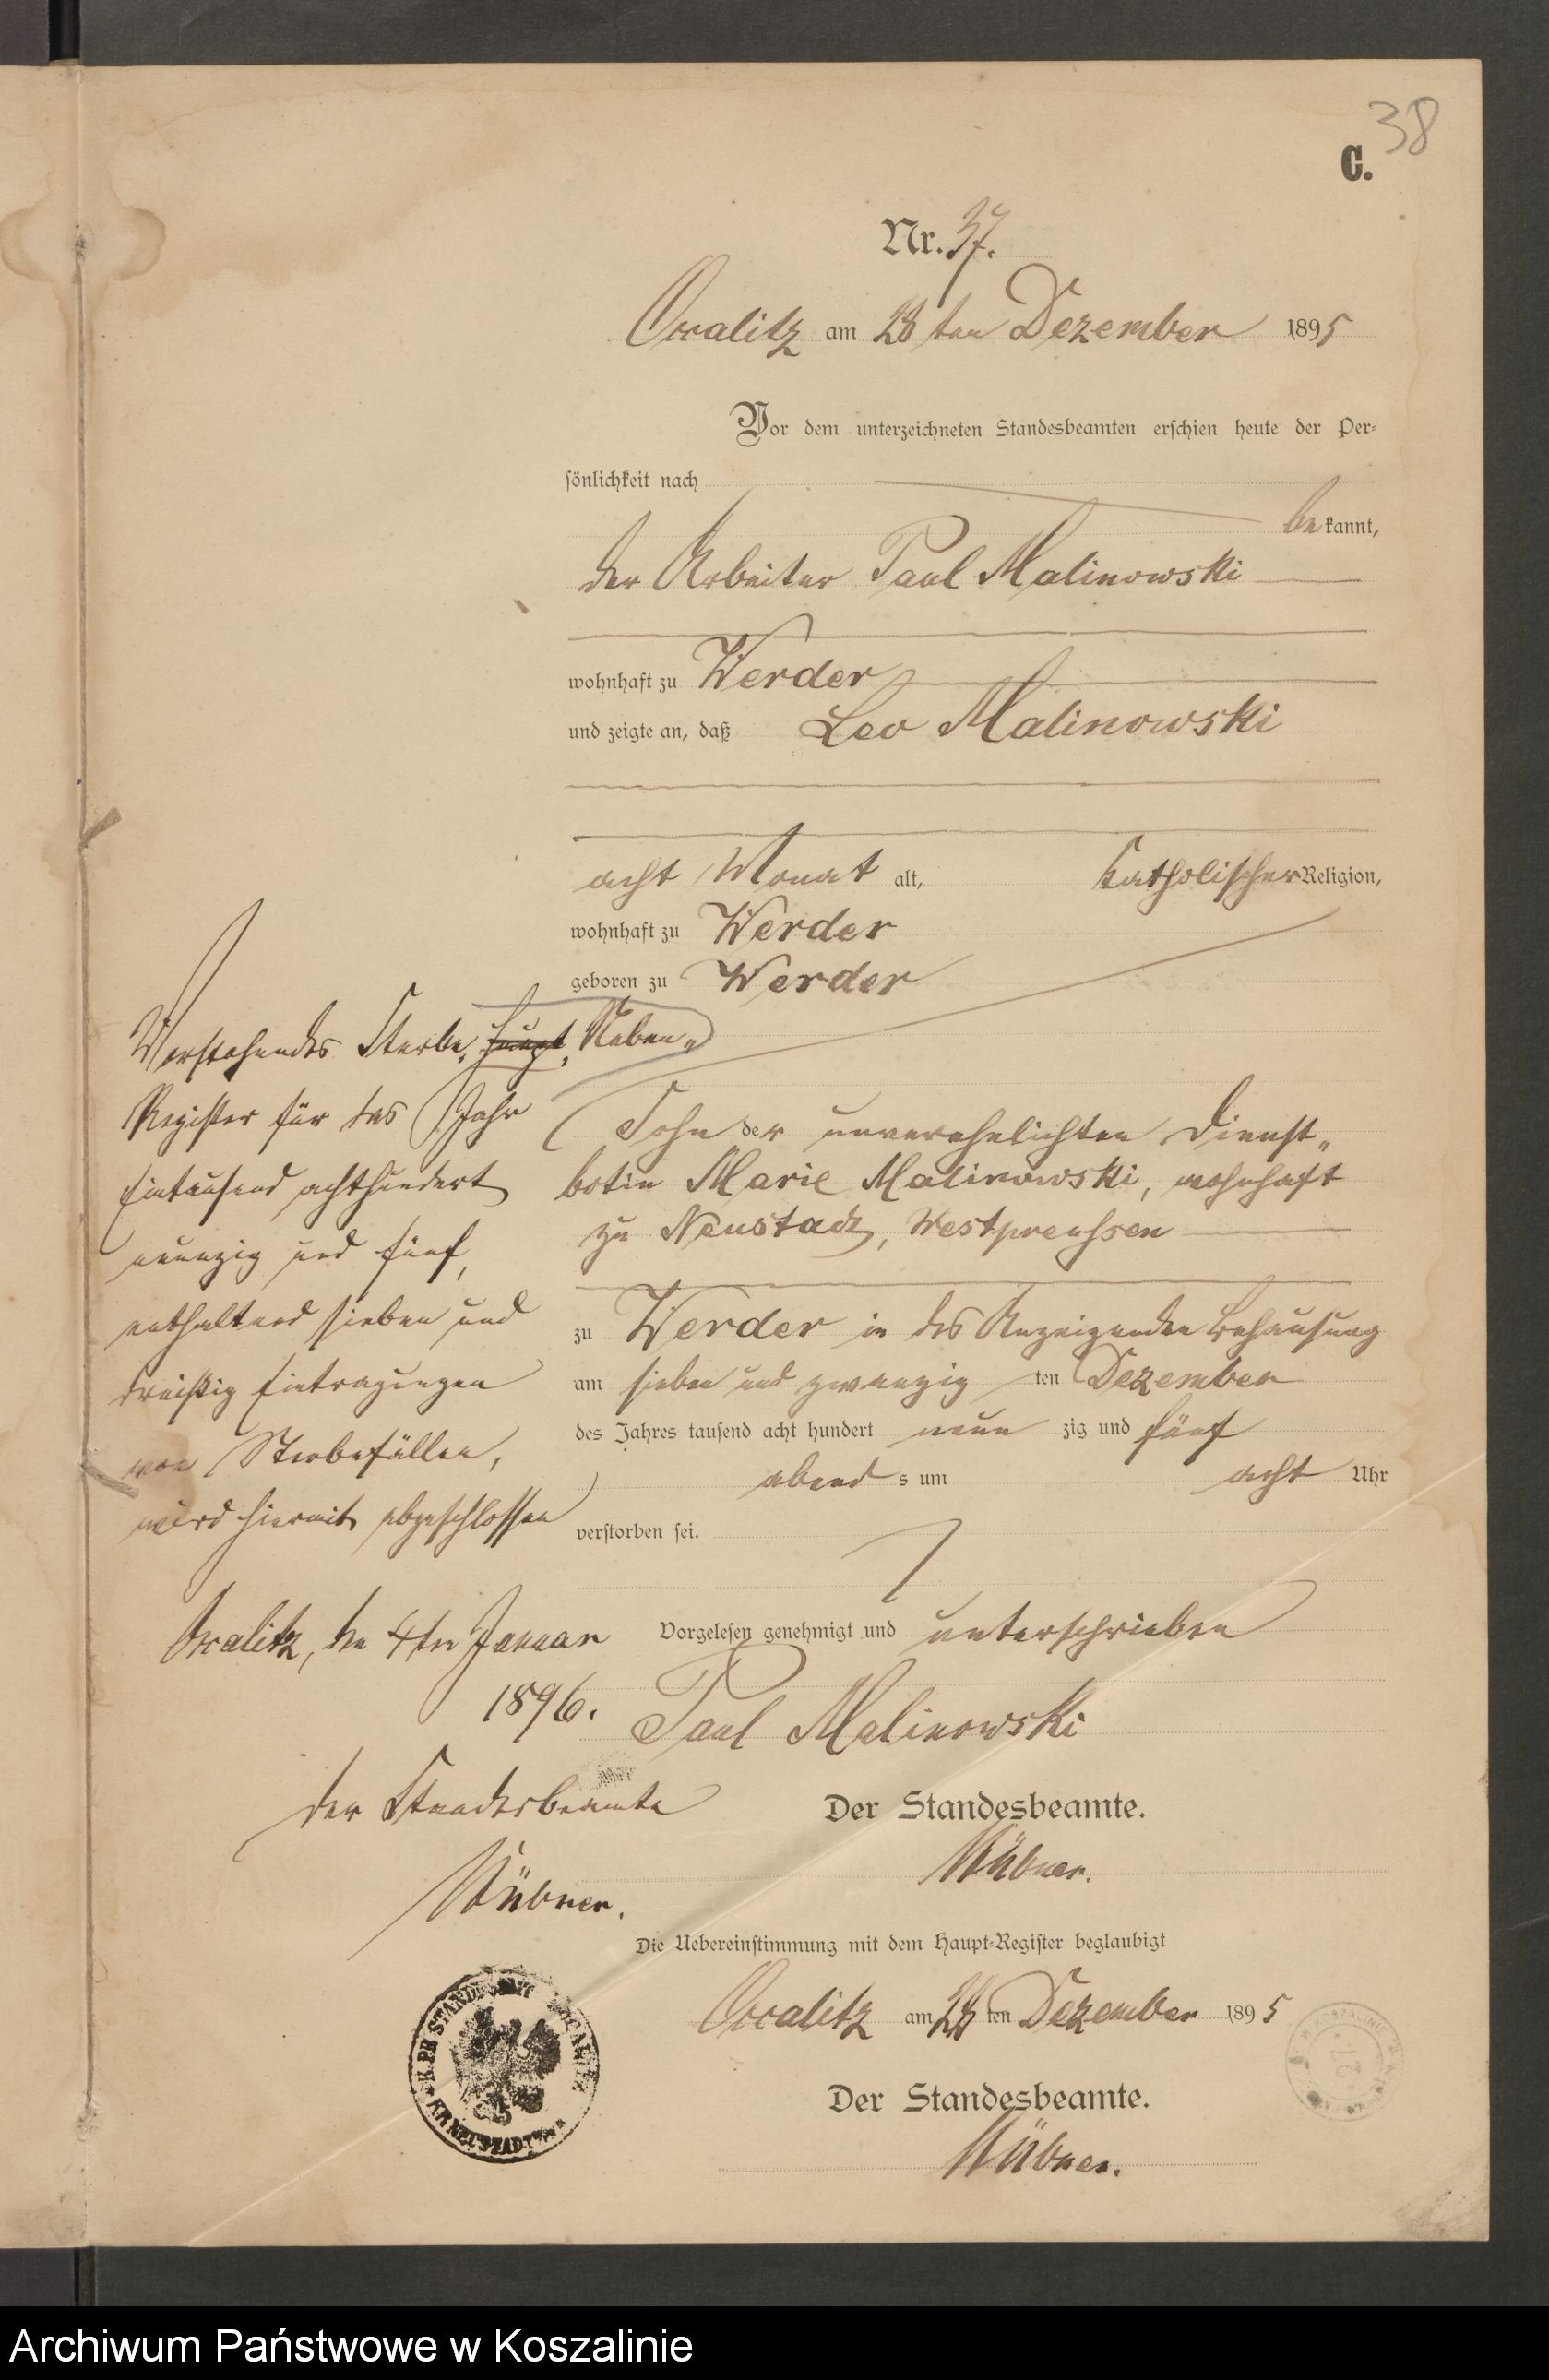 38
C.
Nr. 37.
Occalitz am 28 ten Dezember 1895
Vor dem unterzeichneten Standesbeamten erschien heute der Per-
sönlichkeit nach
be kannt,
der Arbeiter Paul Malinowski
wohnhaft zu Werder
und zeigte an, daß Leo Malinowski
acht Monat alt, katholischer Religion,
wohnhaft zu Werder
geboren zu Werder
Sohn der unverehelichten Dienst„
botin Marie Malinowski, wohnhaft
zu Neustadt, Westpreußen
zu Werder in des Anzeigenden Behausung
am sieben und zwanzig ten Dezember
des Jahres tausend acht hundert neun zig und fünf
abend s um acht Uhr
verstorben sei.
Vorgelesen genehmigt und unterschrieben
Paul Malinowski
Der Standesbeamte.
Die Uebereinstimmung mit dem Haupt-Register beglaubigt
Occalitz am 28 ten Dezember 1895
Der Standesbeamte.
Vorstehendes Sterbe„ Haupt„ Neben„
Register für das Jahr
Eintausend achthundert
neunzig und fünf,
enthaltend sieben und
dreißig Eintragungen
von Sterbefällen,
wird hiermit abgeschlossen
Occalitz, den 4ten Januar
1896.
der Standesbeamte
K. PR. STANDESAMT
KR. NEUSTADT
Archiwum Państwowe w Koszalinie